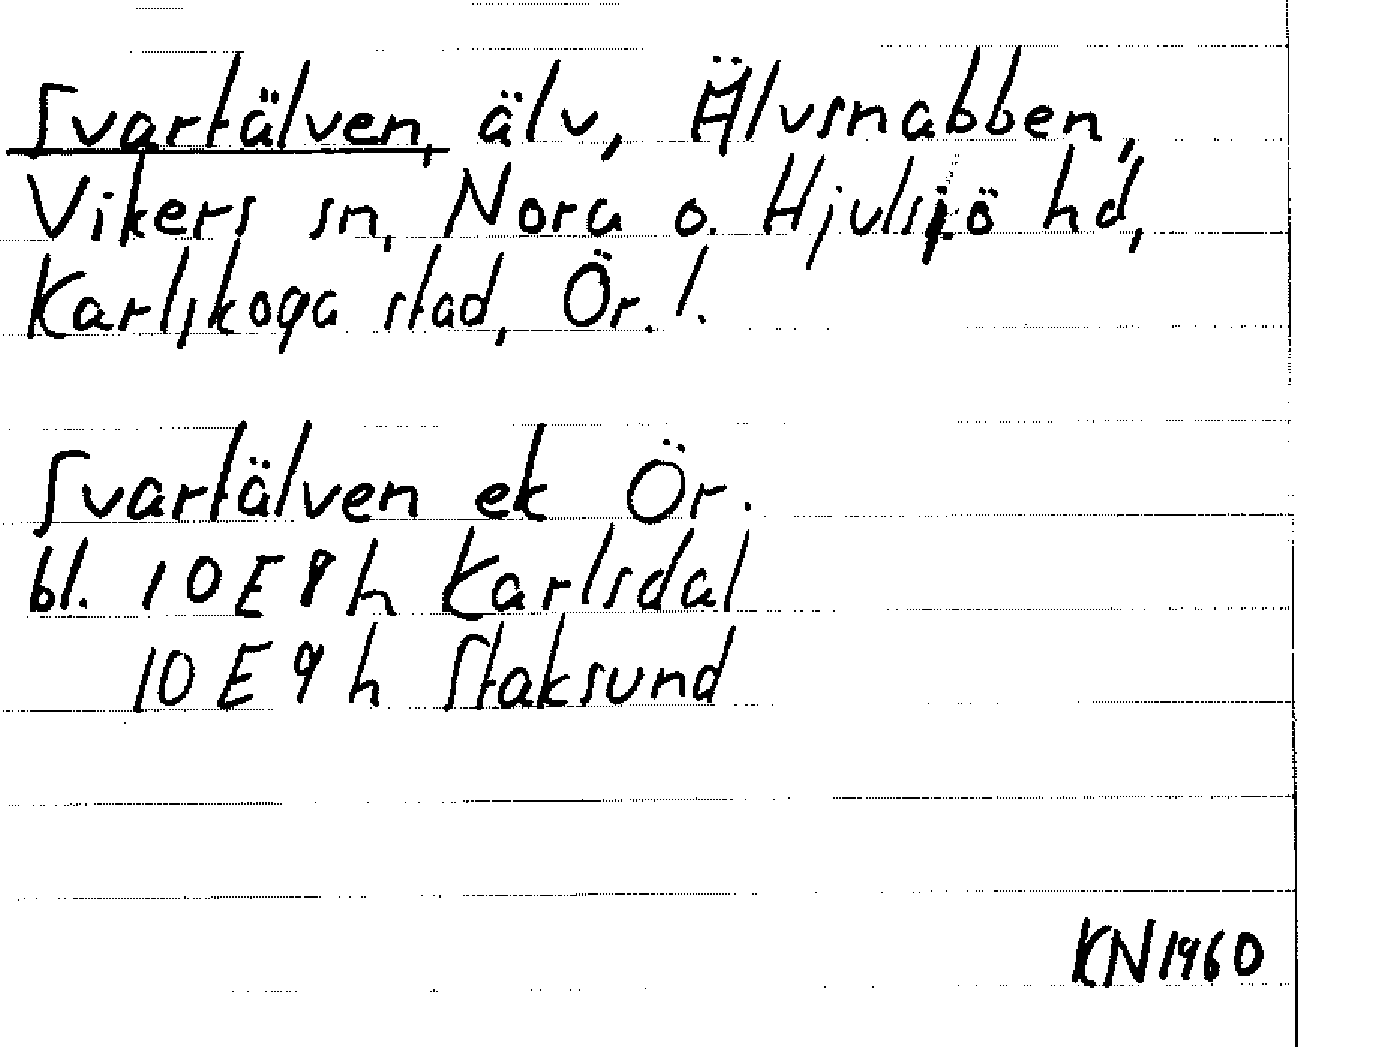 Svartälven, älv, Älvsnabben,
Vikers sn, Nora o. Hjulsjö hd,
Karlskoga stad, Ör. l.
Svartälven ek Ör.
bl. 10 E 8 h Karlsdal
10 E 9 h Staksund
KN 1960